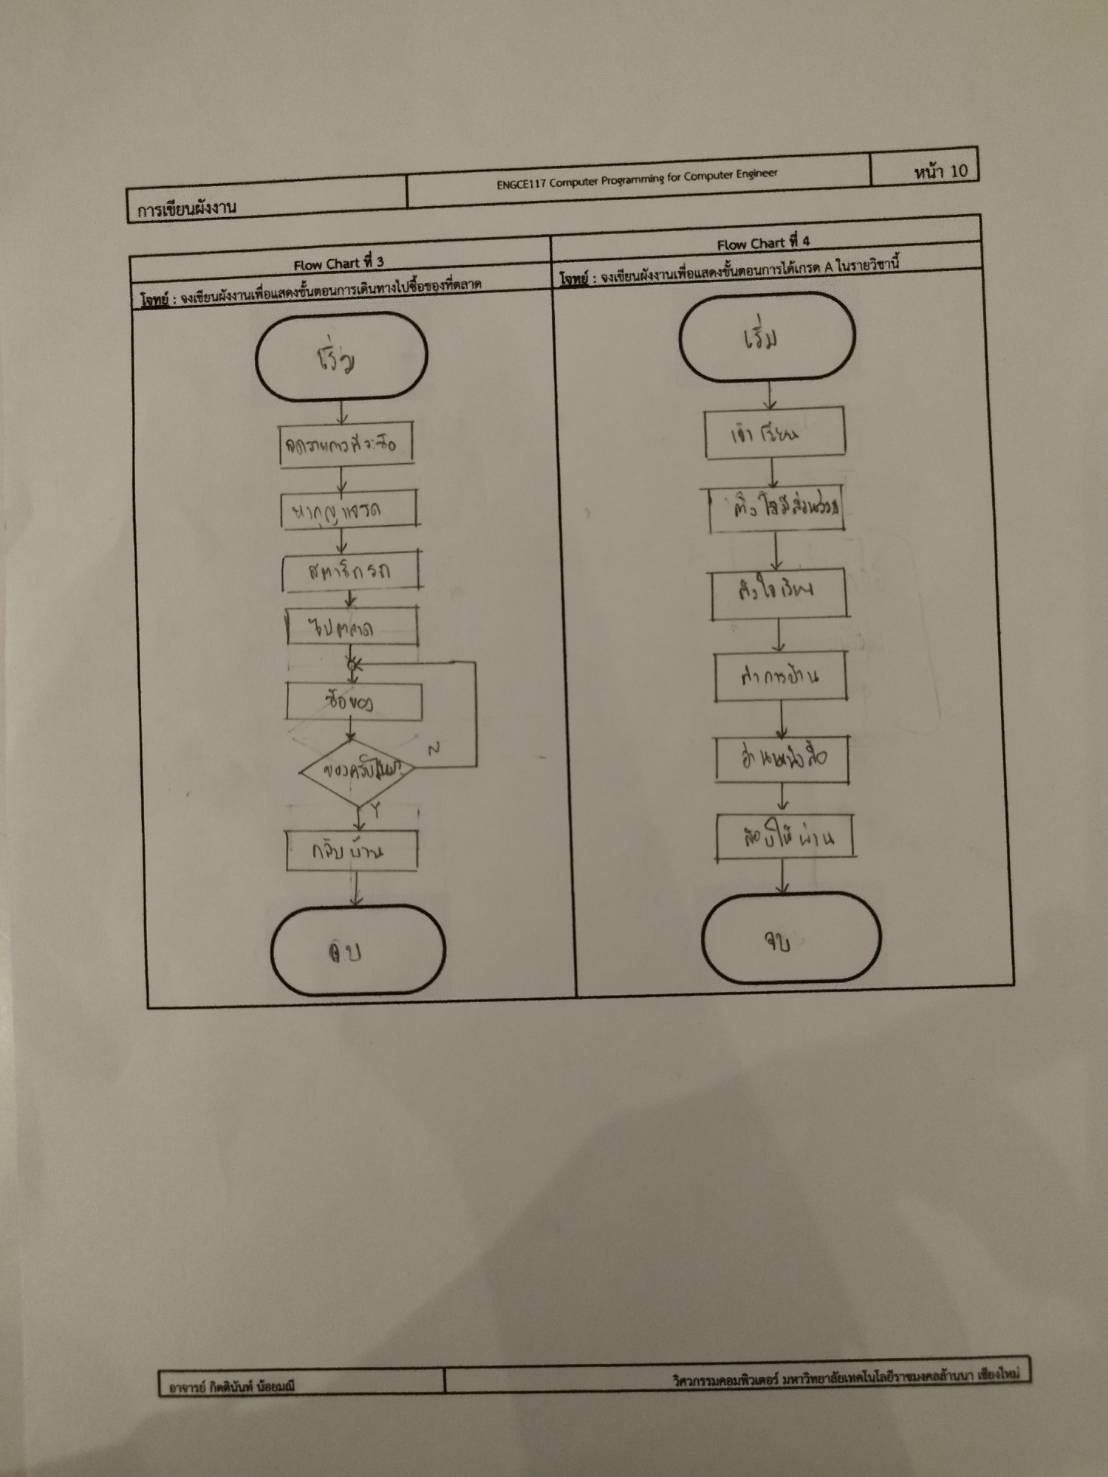 การเขียนผังงาน
ENGCE117 Computer Programming for Computer Engineer
หน้า 10
Flow Chart ที่ 3
โจทย์ : จงเขียนผังงานเพื่อแสดงขั้นตอนการเดินทางไปซื้อของที่ตลาด
เริ่ม
จดรายการที่จะซื้อ
หากุญแจรถ
สตาร์ทรถ
ไปตลาด
ซื้อของ
N
Y
กลับบ้าน
จบ
Flow Chart ที่ 4
โจทย์ : จงเขียนผังงานเพื่อแสดงขั้นตอนการได้เกรด A ในรายวิชานี้
เริ่ม
เข้าเรียน
ตั้งใจเรียน
ทำการบ้าน
อ่านหนังสือ
สอบให้ผ่าน
จบ
อาจารย์ กิตตินันท์ น้อยมณี
วิศวกรรมคอมพิวเตอร์ มหาวิทยาลัยเทคโนโลยีราชมงคลล้านนา เชียงใหม่